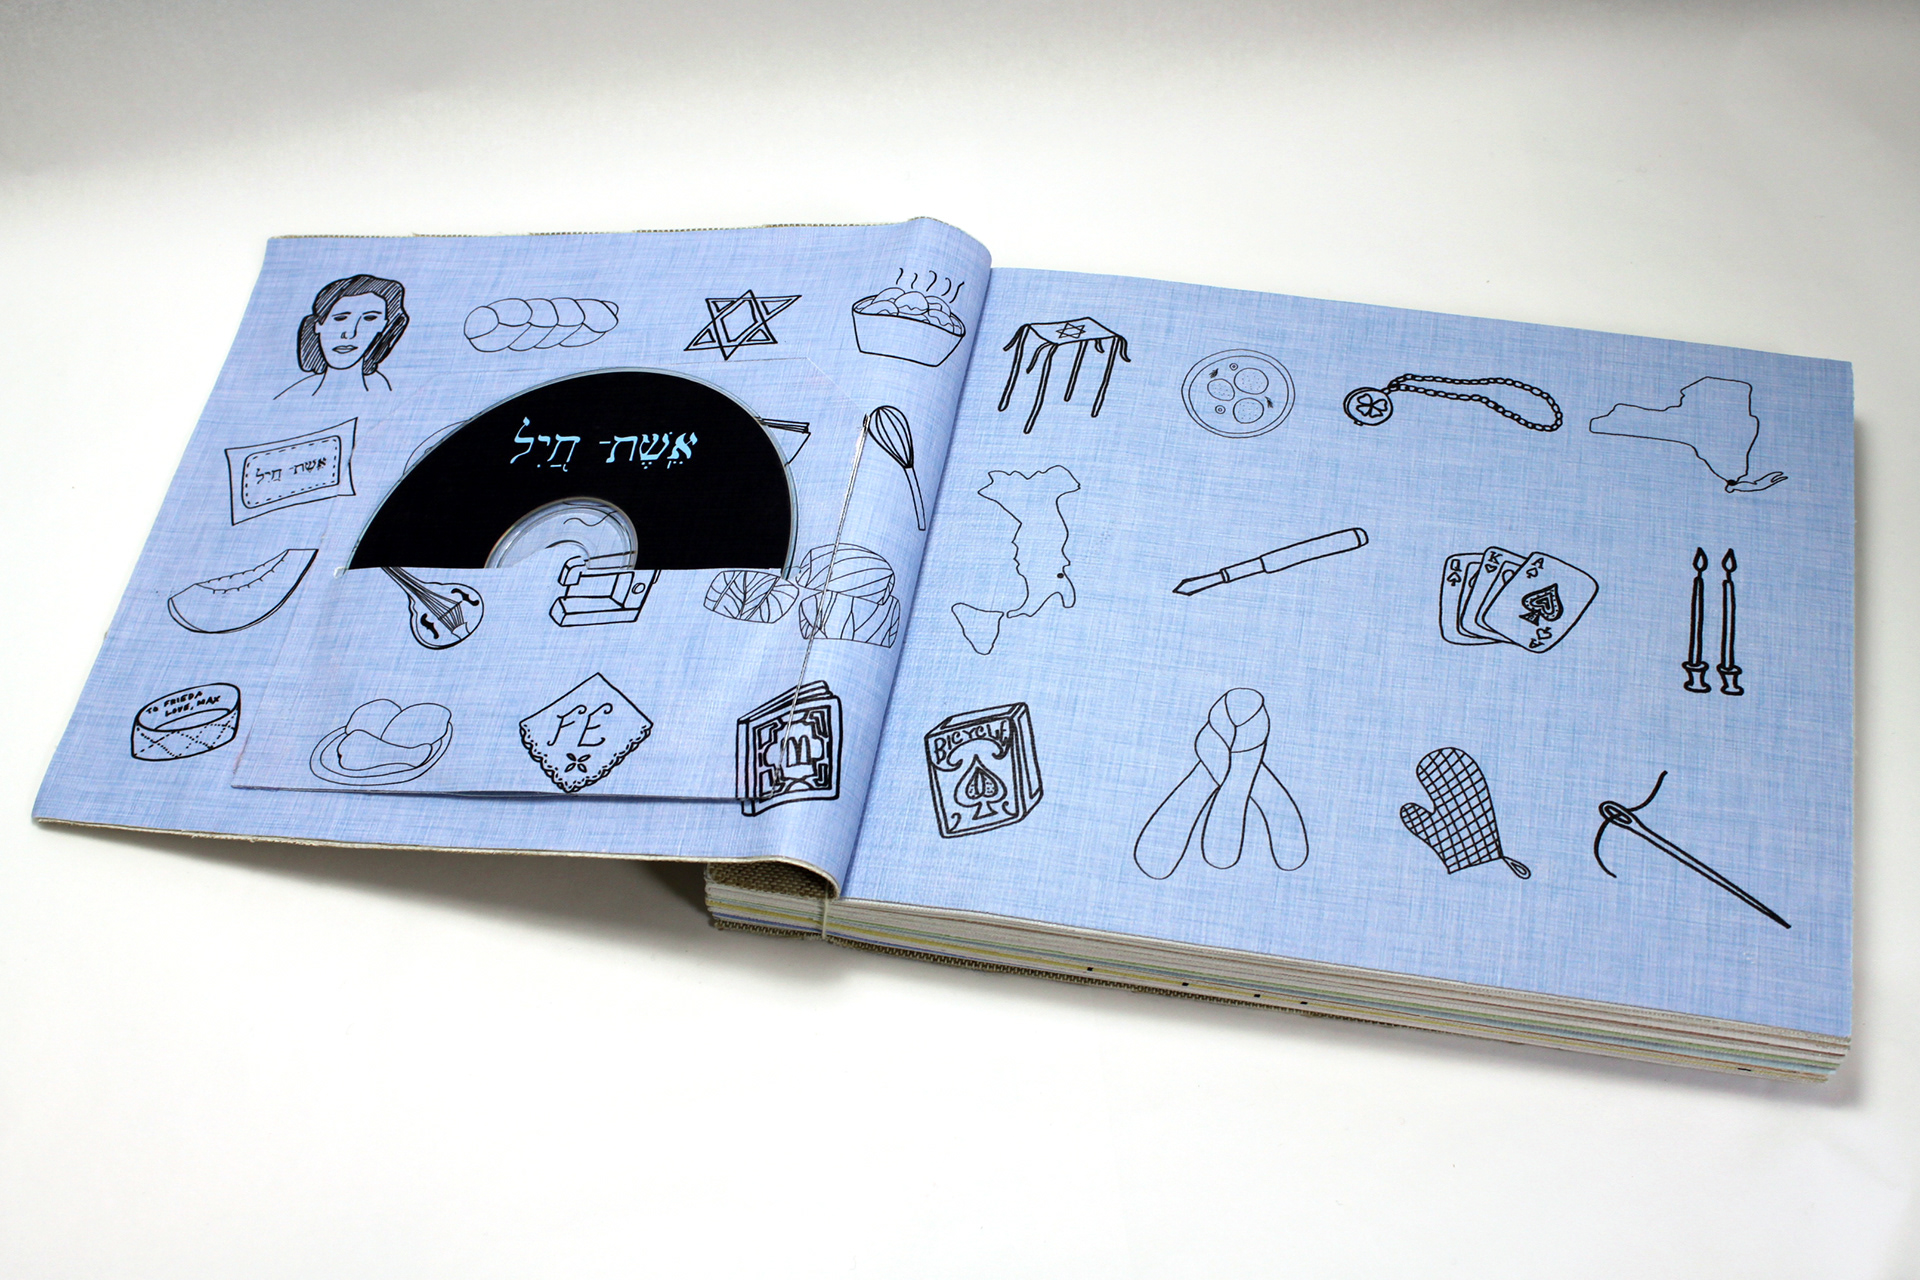 אֵשֶׁת־ חַיִל
אשת־ חיל
TO FRIEDA
LOVE, MAX
FE
Q
K
A
A
BICYCLE